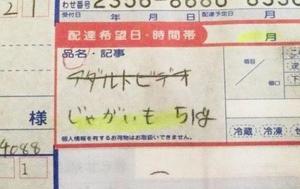 わせ番号 2356-8686-8356
受付日 年 月 日 配達予定日
配達希望日・時間帯 月
品名・記事
アダルトビデオ
様
じゃがいも 5kg
個人情報を有するお荷物はお取扱いできません。
冷蔵 冷凍
4088